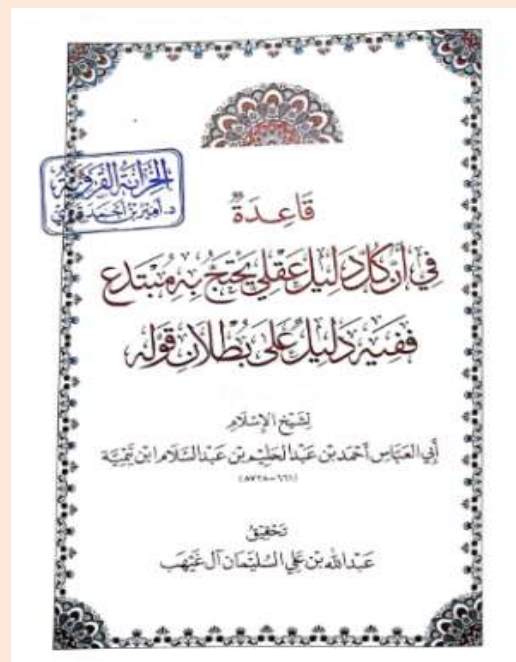 الخزانة القروية
د. أمير بن أحمد قروي
قَاعِدَةٌ
فِي أَنَّ كُلَّ دَلِيلٍ عَقْلِيٍّ يَحْتَجُّ بِهِ مُبْتَدِعٌ
فَفِيهِ دَلِيلٌ عَلَى بُطْلَانِ قَوْلِهِ
لِشَيْخِ الْإِسْلَامِ
أَبِي العَبَّاسِ أَحْمَدَ بْنِ عَبْدِ الحَلِيمِ بْنِ عَبْدِ السَّلَامِ ابْنِ تَيْمِيَّة
(٦٦١-٧٢٨هـ)
تَحْقِيقُ
عَبْدِ اللهِ بْنِ عَلِيٍّ السُّلَيْمَانِ آلِ غَيْهَب